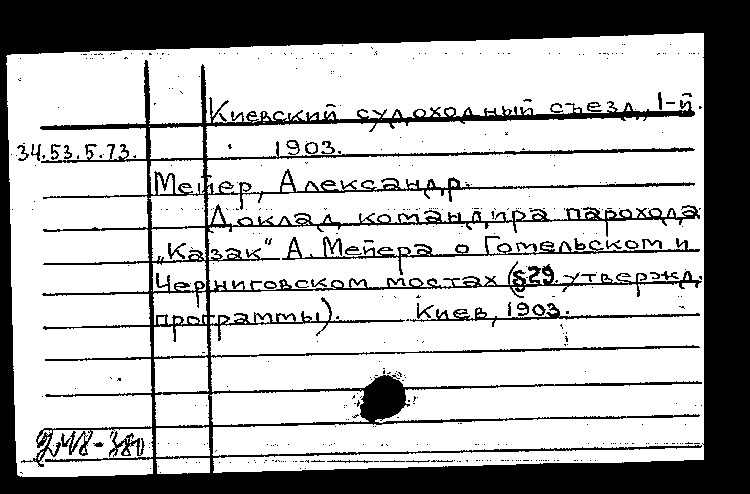 Киевский судоходный съезд, 1-й.
34.53.5.73. 1903.
Мейер, Александр.
Доклад командира парохода
„Казак" А. Мейера о Гомельском и
Черниговском мостах (§29. утвержд.
программы). Киев, 1903.